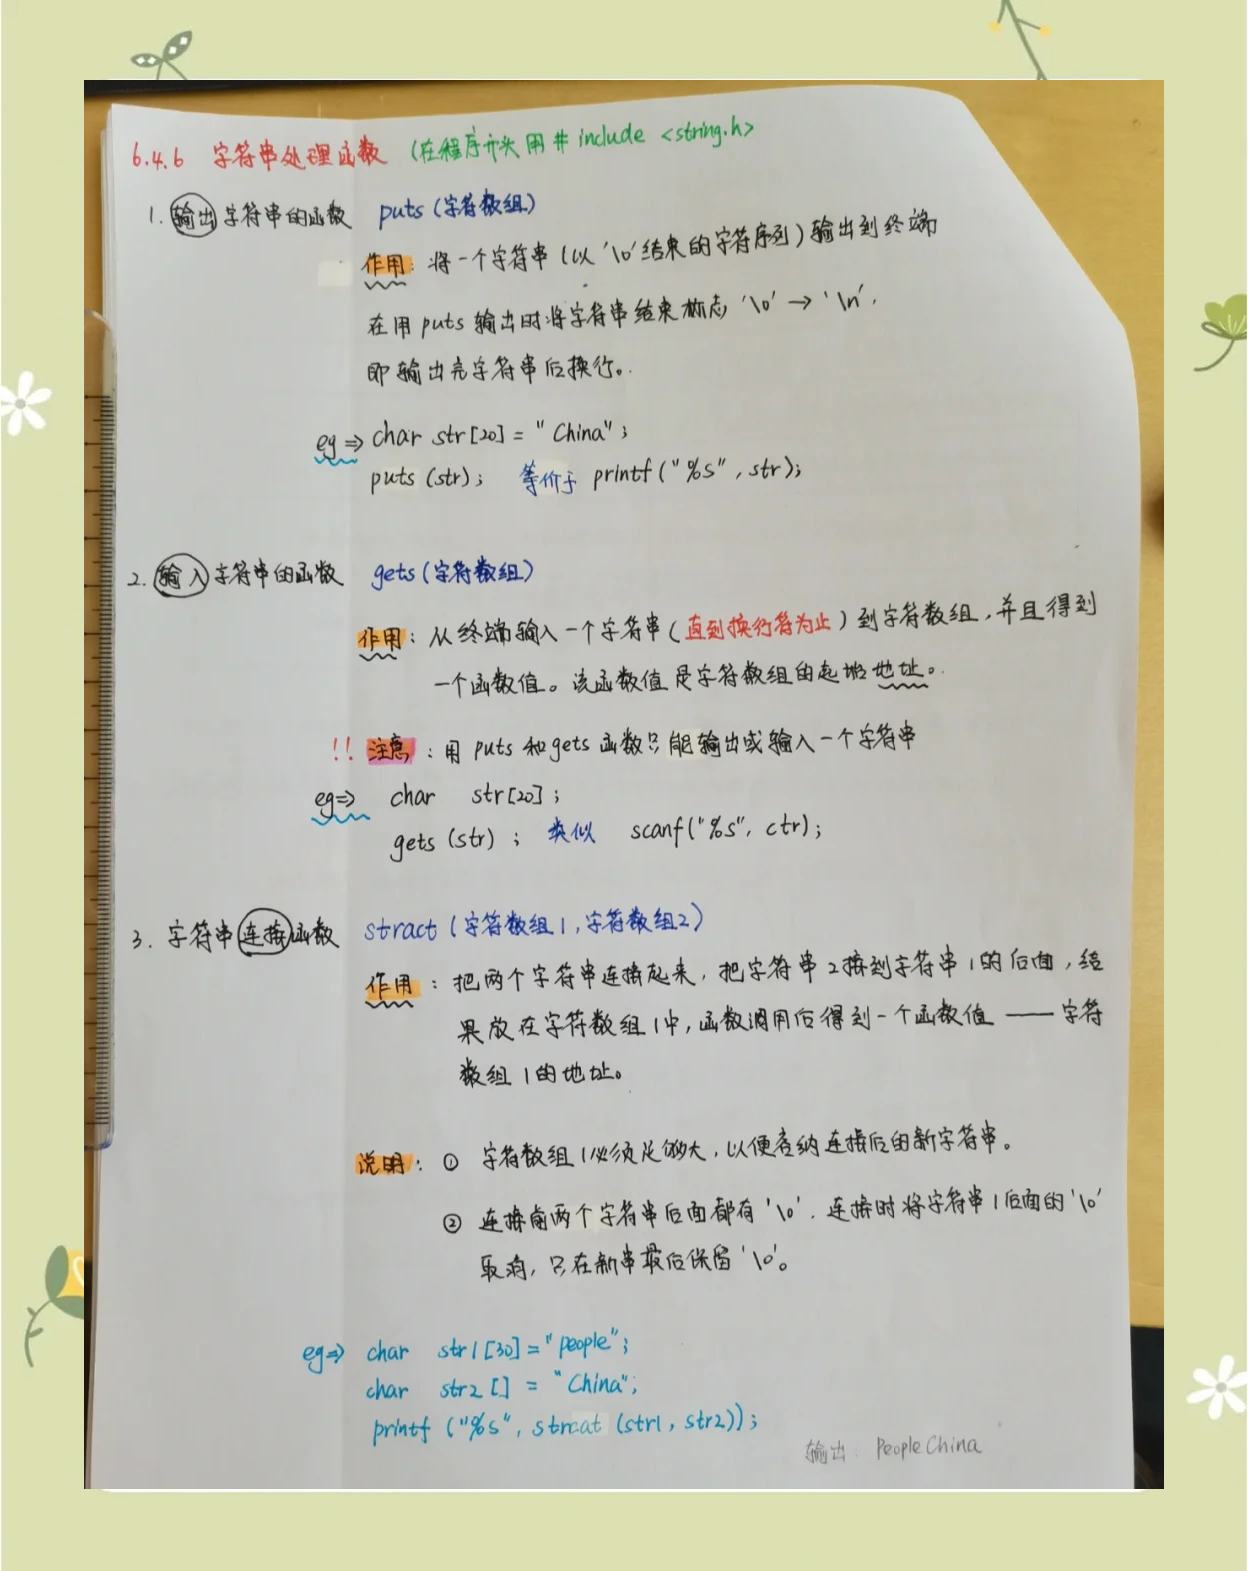 6.4.6 字符串处理函数 (在程序开头用 # include <string.h>
1. 输出字符串的函数 puts (字符数组)
作用: 将一个字符串 (以 '\0' 结束的字符序列) 输出到终端
在用 puts 输出时将字符串结束标志 '\0' → '\n'.
即输出完字符串后换行。
eg => char str[20] = "China";
puts (str); 等价于 printf ("%s", str);
2. 输入字符串的函数 gets (字符数组)
作用: 从终端输入一个字符串 (直到换行符为止) 到字符数组, 并且得到
一个函数值。该函数值是字符数组的起始地址。
!! 注意: 用 puts 和 gets 函数只能输出或输入一个字符串
eg => char str[20];
gets (str); 类似 scanf("%s", ctr);
3. 字符串连接函数 stract (字符数组1, 字符数组2)
作用: 把两个字符串连接起来, 把字符串2接到字符串1的后面, 结
果放在字符数组1中, 函数调用后得到一个函数值 —— 字符
数组1的地址。
说明: ① 字符数组1必须足够大, 以便容纳连接后的新字符串。
② 连接前两个字符串后面都有 '\0'. 连接时将字符串1后面的 '\0'
取消, 只在新串最后保留 '\0'。
eg => char str1[30] = "people";
char str2[] = "China";
printf ("%s", strcat (str1, str2));
输出: People China